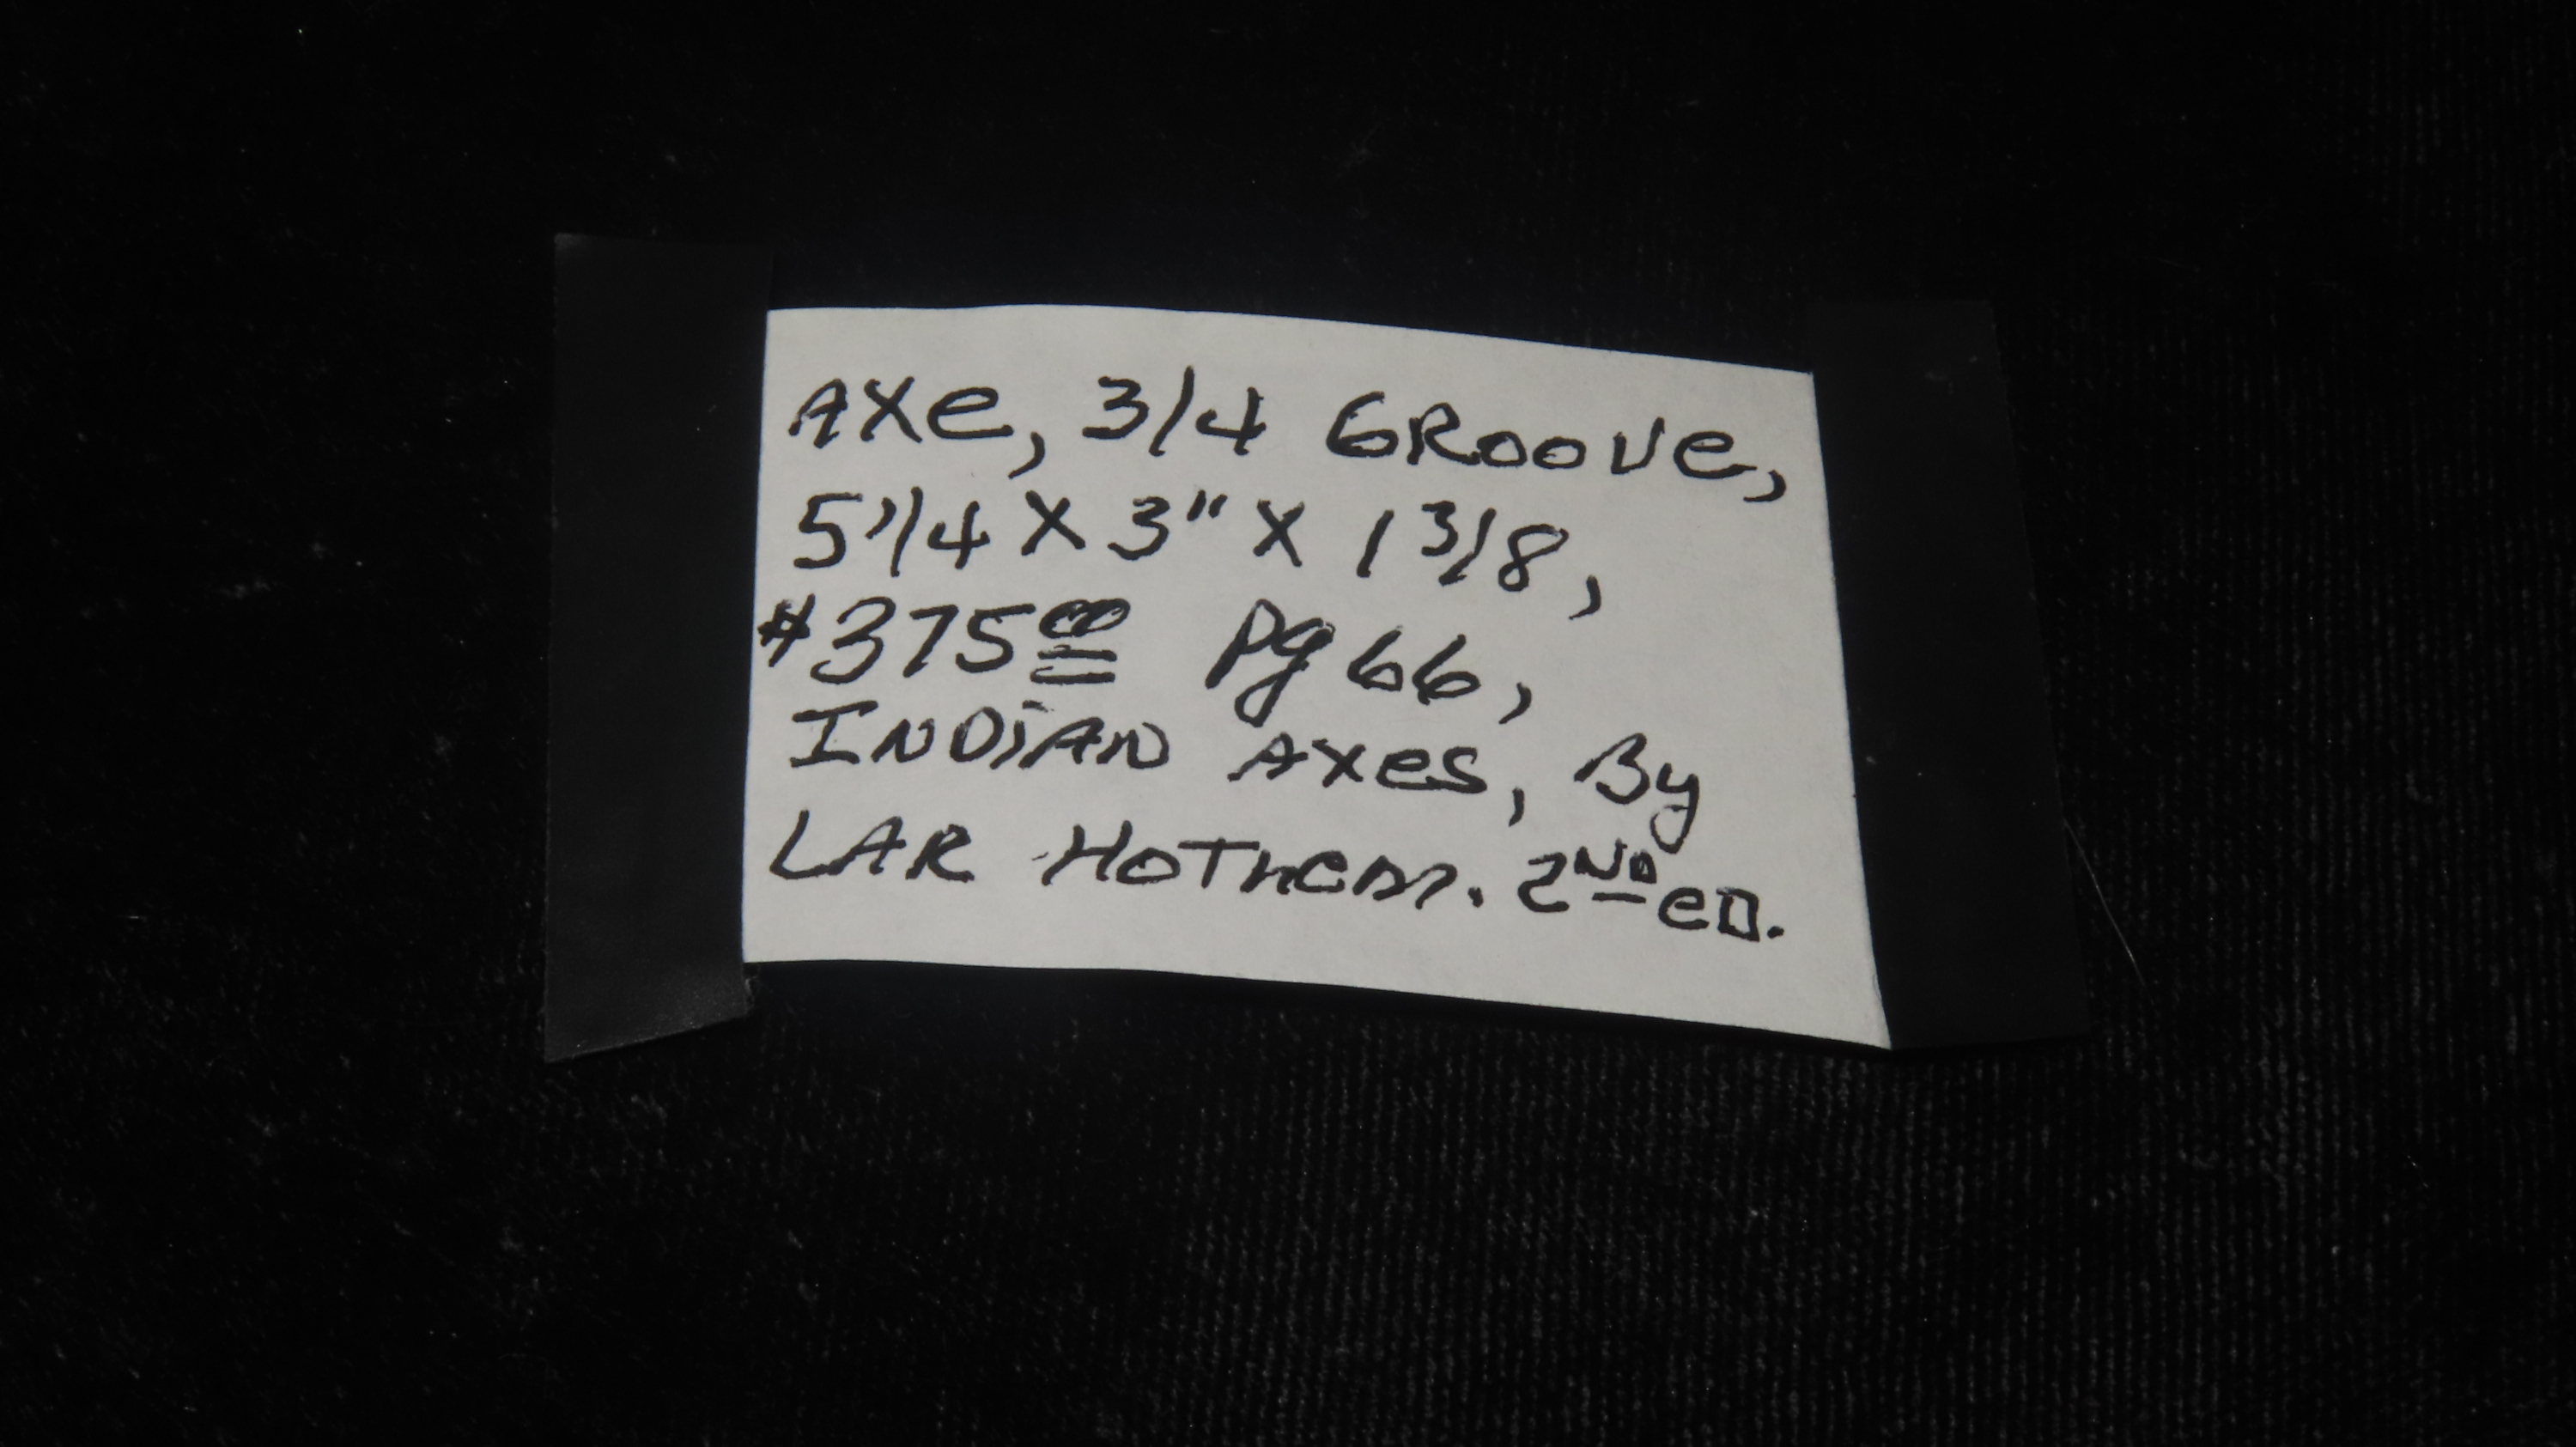 AXe, 3/4 GROOVe,
5 1/4 X 3" X 1 3/8,
$375 00 Pg 66,
INDiAN AXes, By
LAR HOTHem. 2ND eD.